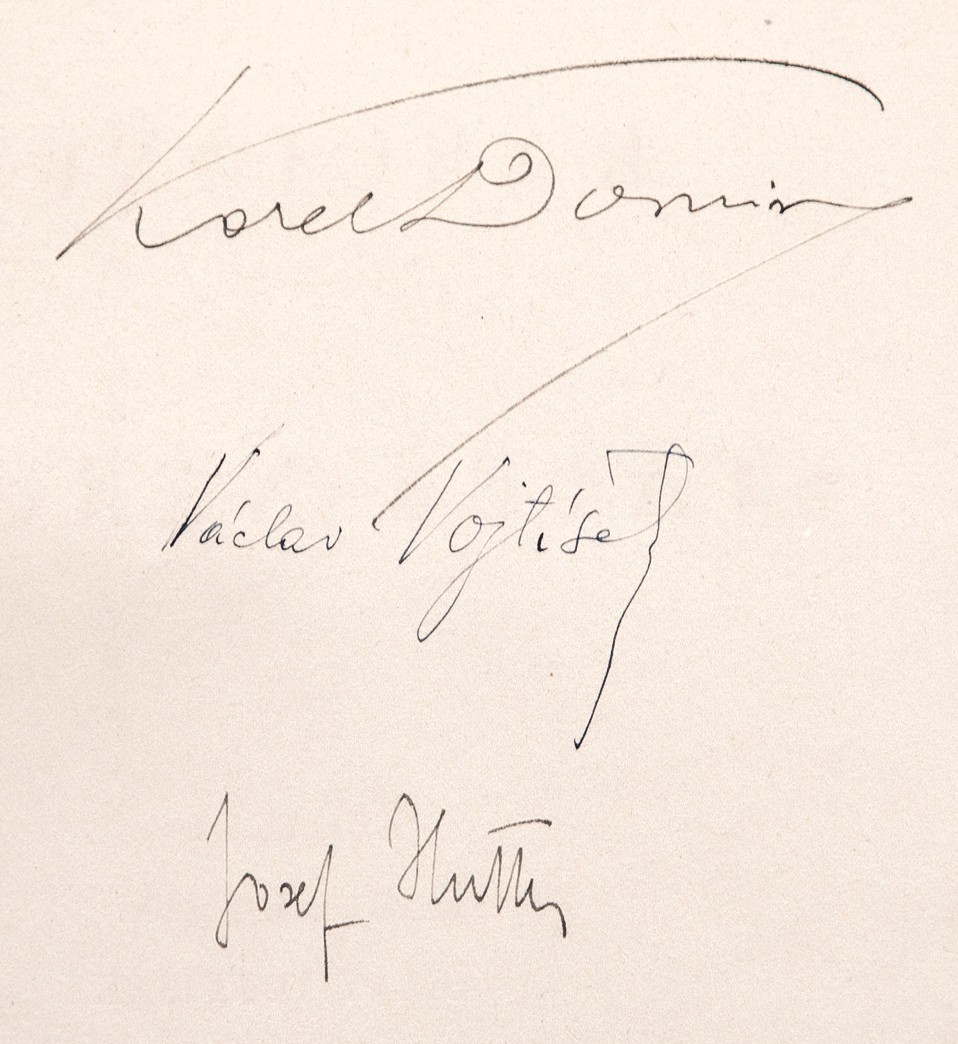 Karel Domin
Václav Vojtíšek
Josef Hutter